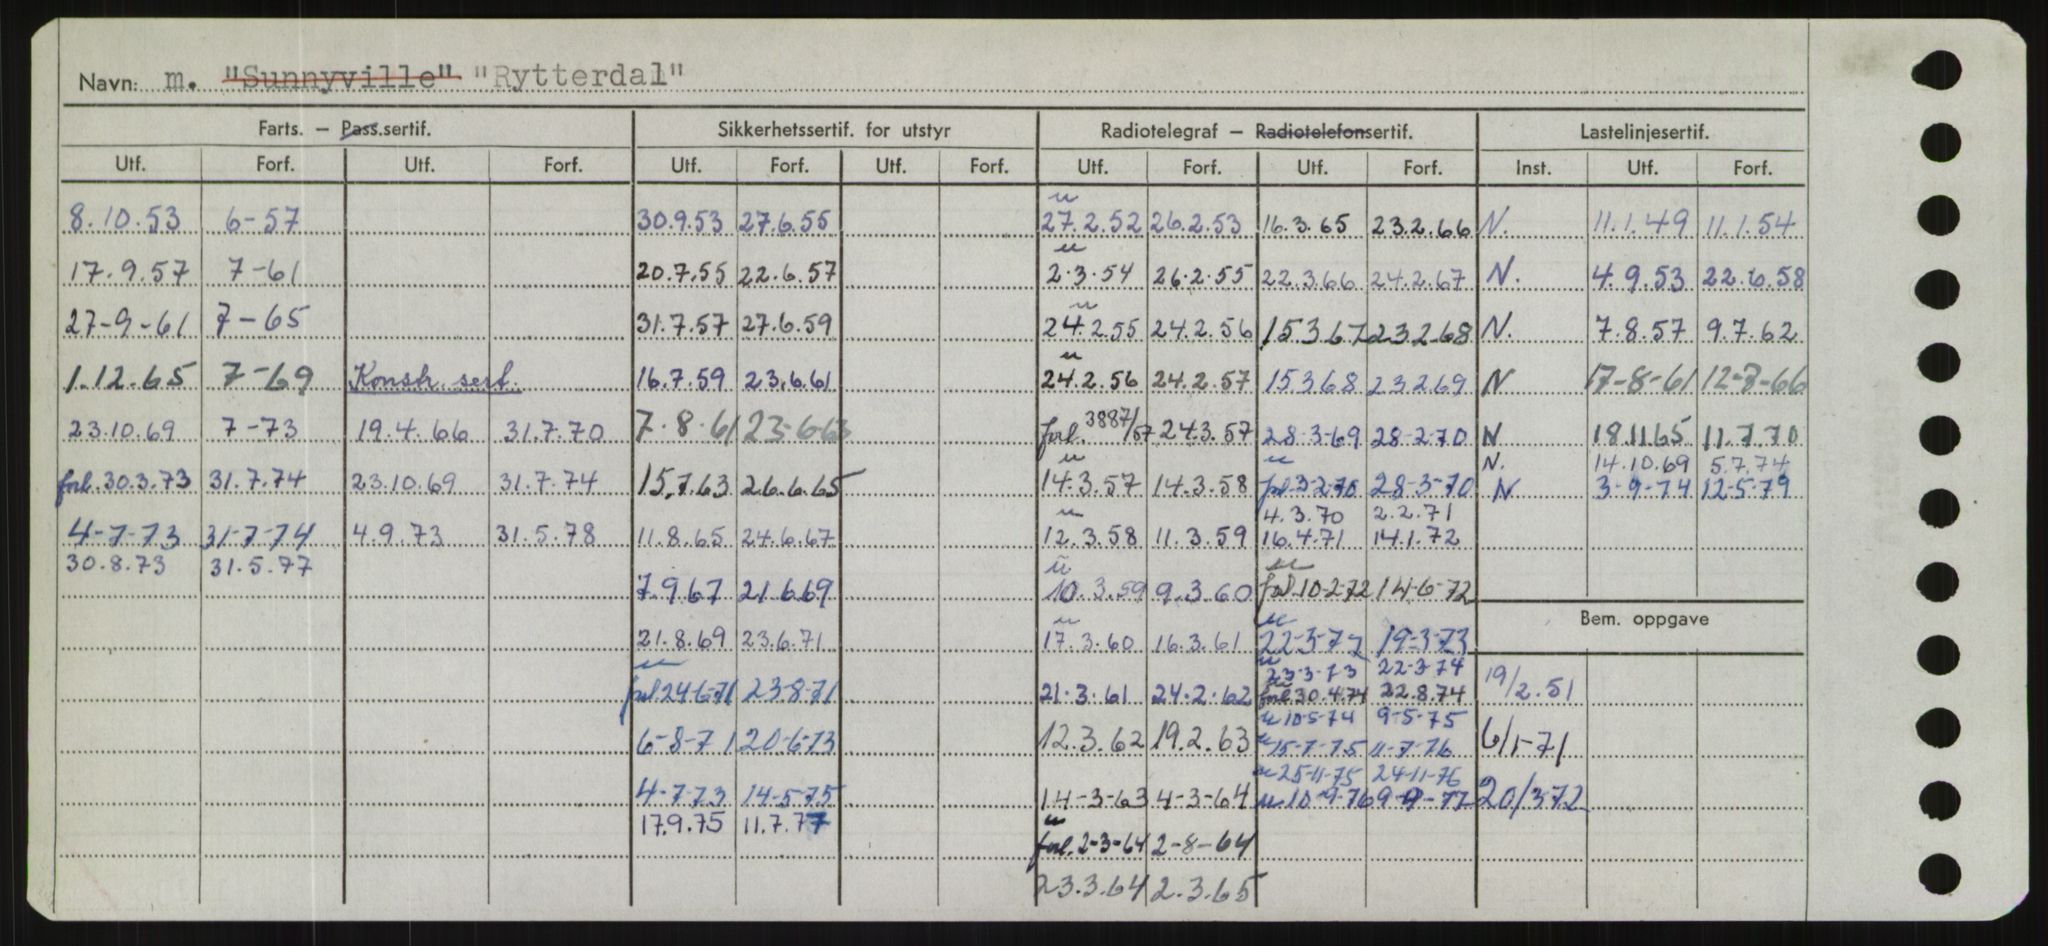 Navn: m. "Sunnyville" "Rytterdal"
Farts. – Pass.sertif. Sikkerhetssertif. for utstyr Radiotelegraf – Radiotelefonsertif. Lastelinjesertif.
Utf. Forf. Utf. Forf. Utf. Forf. Utf. Forf. Utf. Forf. Utf. Forf. Inst. Utf. Forf.
u
8.10.53 6-57 30.9.53 27.6.55 27.2.52 26.2.53 16.3.65 23.2.66 N. 11.1.49 11.1.54
u
17.9.57 7-61 20.7.55 22.6.57 2.3.54 26.2.55 22.3.66 24.2.67 N. 4.9.53 22.6.58
u
27-9-61 7-65 31.7.57 27.6.59 24.2.55 24.2.56 15.3.67 23.2.68 N. 7.8.57 9.7.62
u
1.12.65 7-69 Konstr. sert. 16.7.59 23.6.61 24.2.56 24.2.57 15.3.68 23.2.69 N 17-8-61 12-7-66
23.10.69 7-73 19.4.66 31.7.70 7.8.61 23-6-63 forl. 3887/57 24.3.57 28-3-69 28-2-70 N 18.11.65 11.7.70
u u N. 14.10.69 5.7.74
forl. 30.3.73 31.7.74 23.10.69 31.7.74 15.7.63 26.6.65 14.3.57 14.3.58 forl. 3-2-70 28-3-70 N 3-9-74 12-5-79
u 4.3.70 2.2.71
4-7-73 31-7-74 4.9.73 31.5.78 11.8.65 24.6.67 12.3.58 11.3.59 16.4.71 14.1.72
30.8.73 31.5.77 u u
7.9.67 21.6.69 10.3.59 9.3.60 forl. 10-2-72 14-6-72
Bem. oppgave
u u
21.8.69 23.6.71 17.3.60 16.3.61 22-3-72 19-3-73
u u 23-3-73 22-3-74
forl. 24-6-71 23-8-71 21.3.61 24.2.62 forl. 30.4.74 22.8.74 19/2.51
u 10-5-74 9-5-75
6-8-71 20-6-73 12.3.62 19.2.63 u 15-7-75 11-7-76 6/1-71
u 25-11-75 24-11-76
4-7-73 14-5-75 14-3-63 4-3-64 u 10-9-76 9-9-77 20/3 72
17.9.75 11.7.77 u
forl. 2-3-64 2-8-64
23.3.64 2.3.65